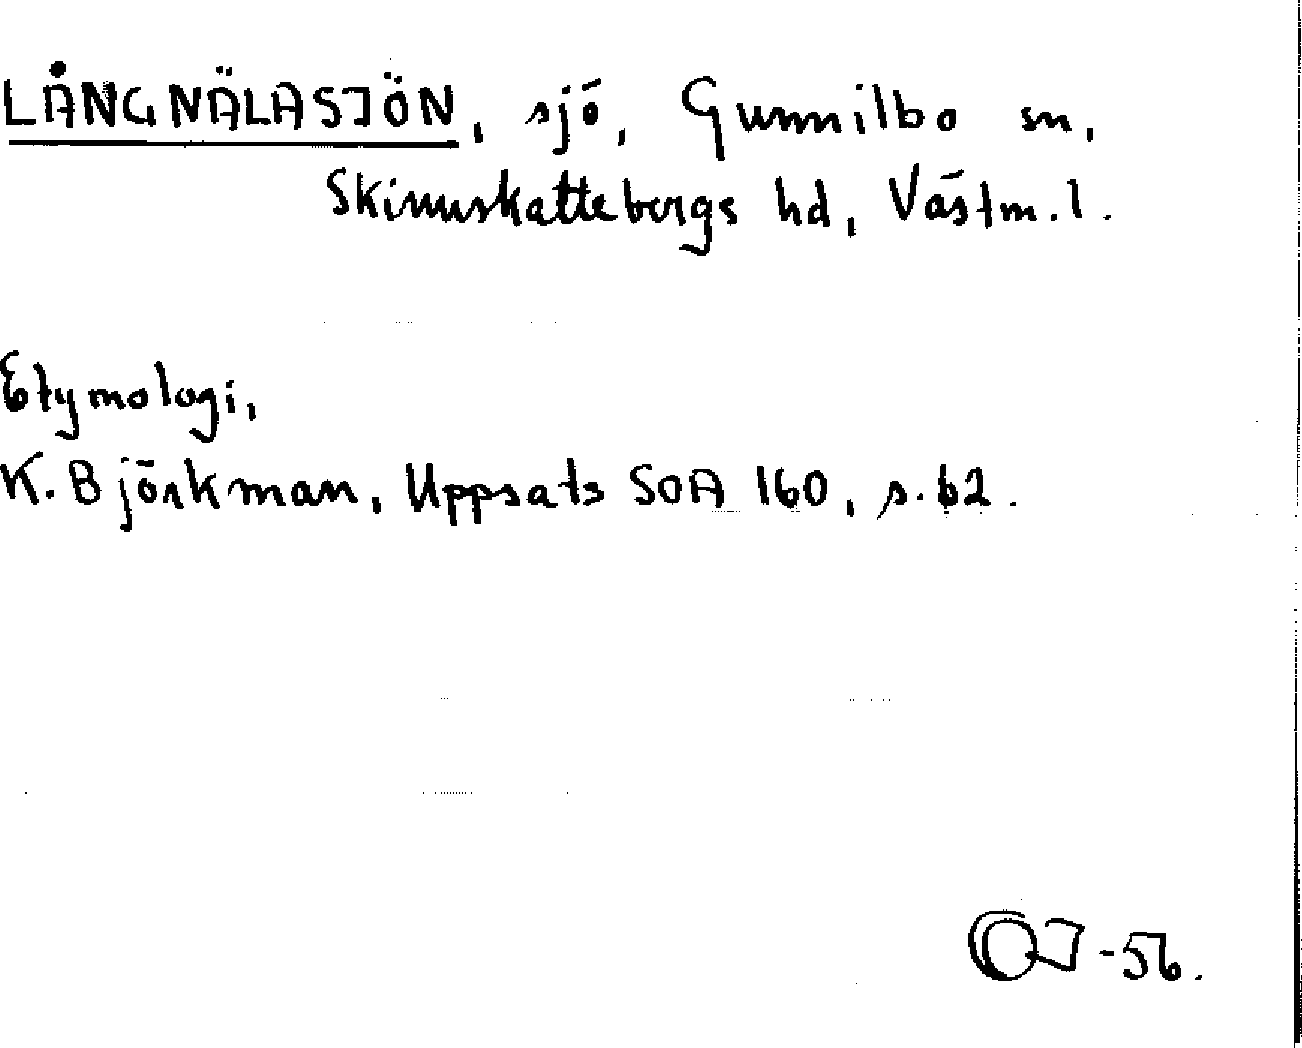 LÅNGNÄLASJÖN, sjö, Gunnilbo sn,
Skinnskattebergs hd, Västm.l.
Etymologi,
K. Björkman, Uppsats SOA 160, s. 62.
-56.